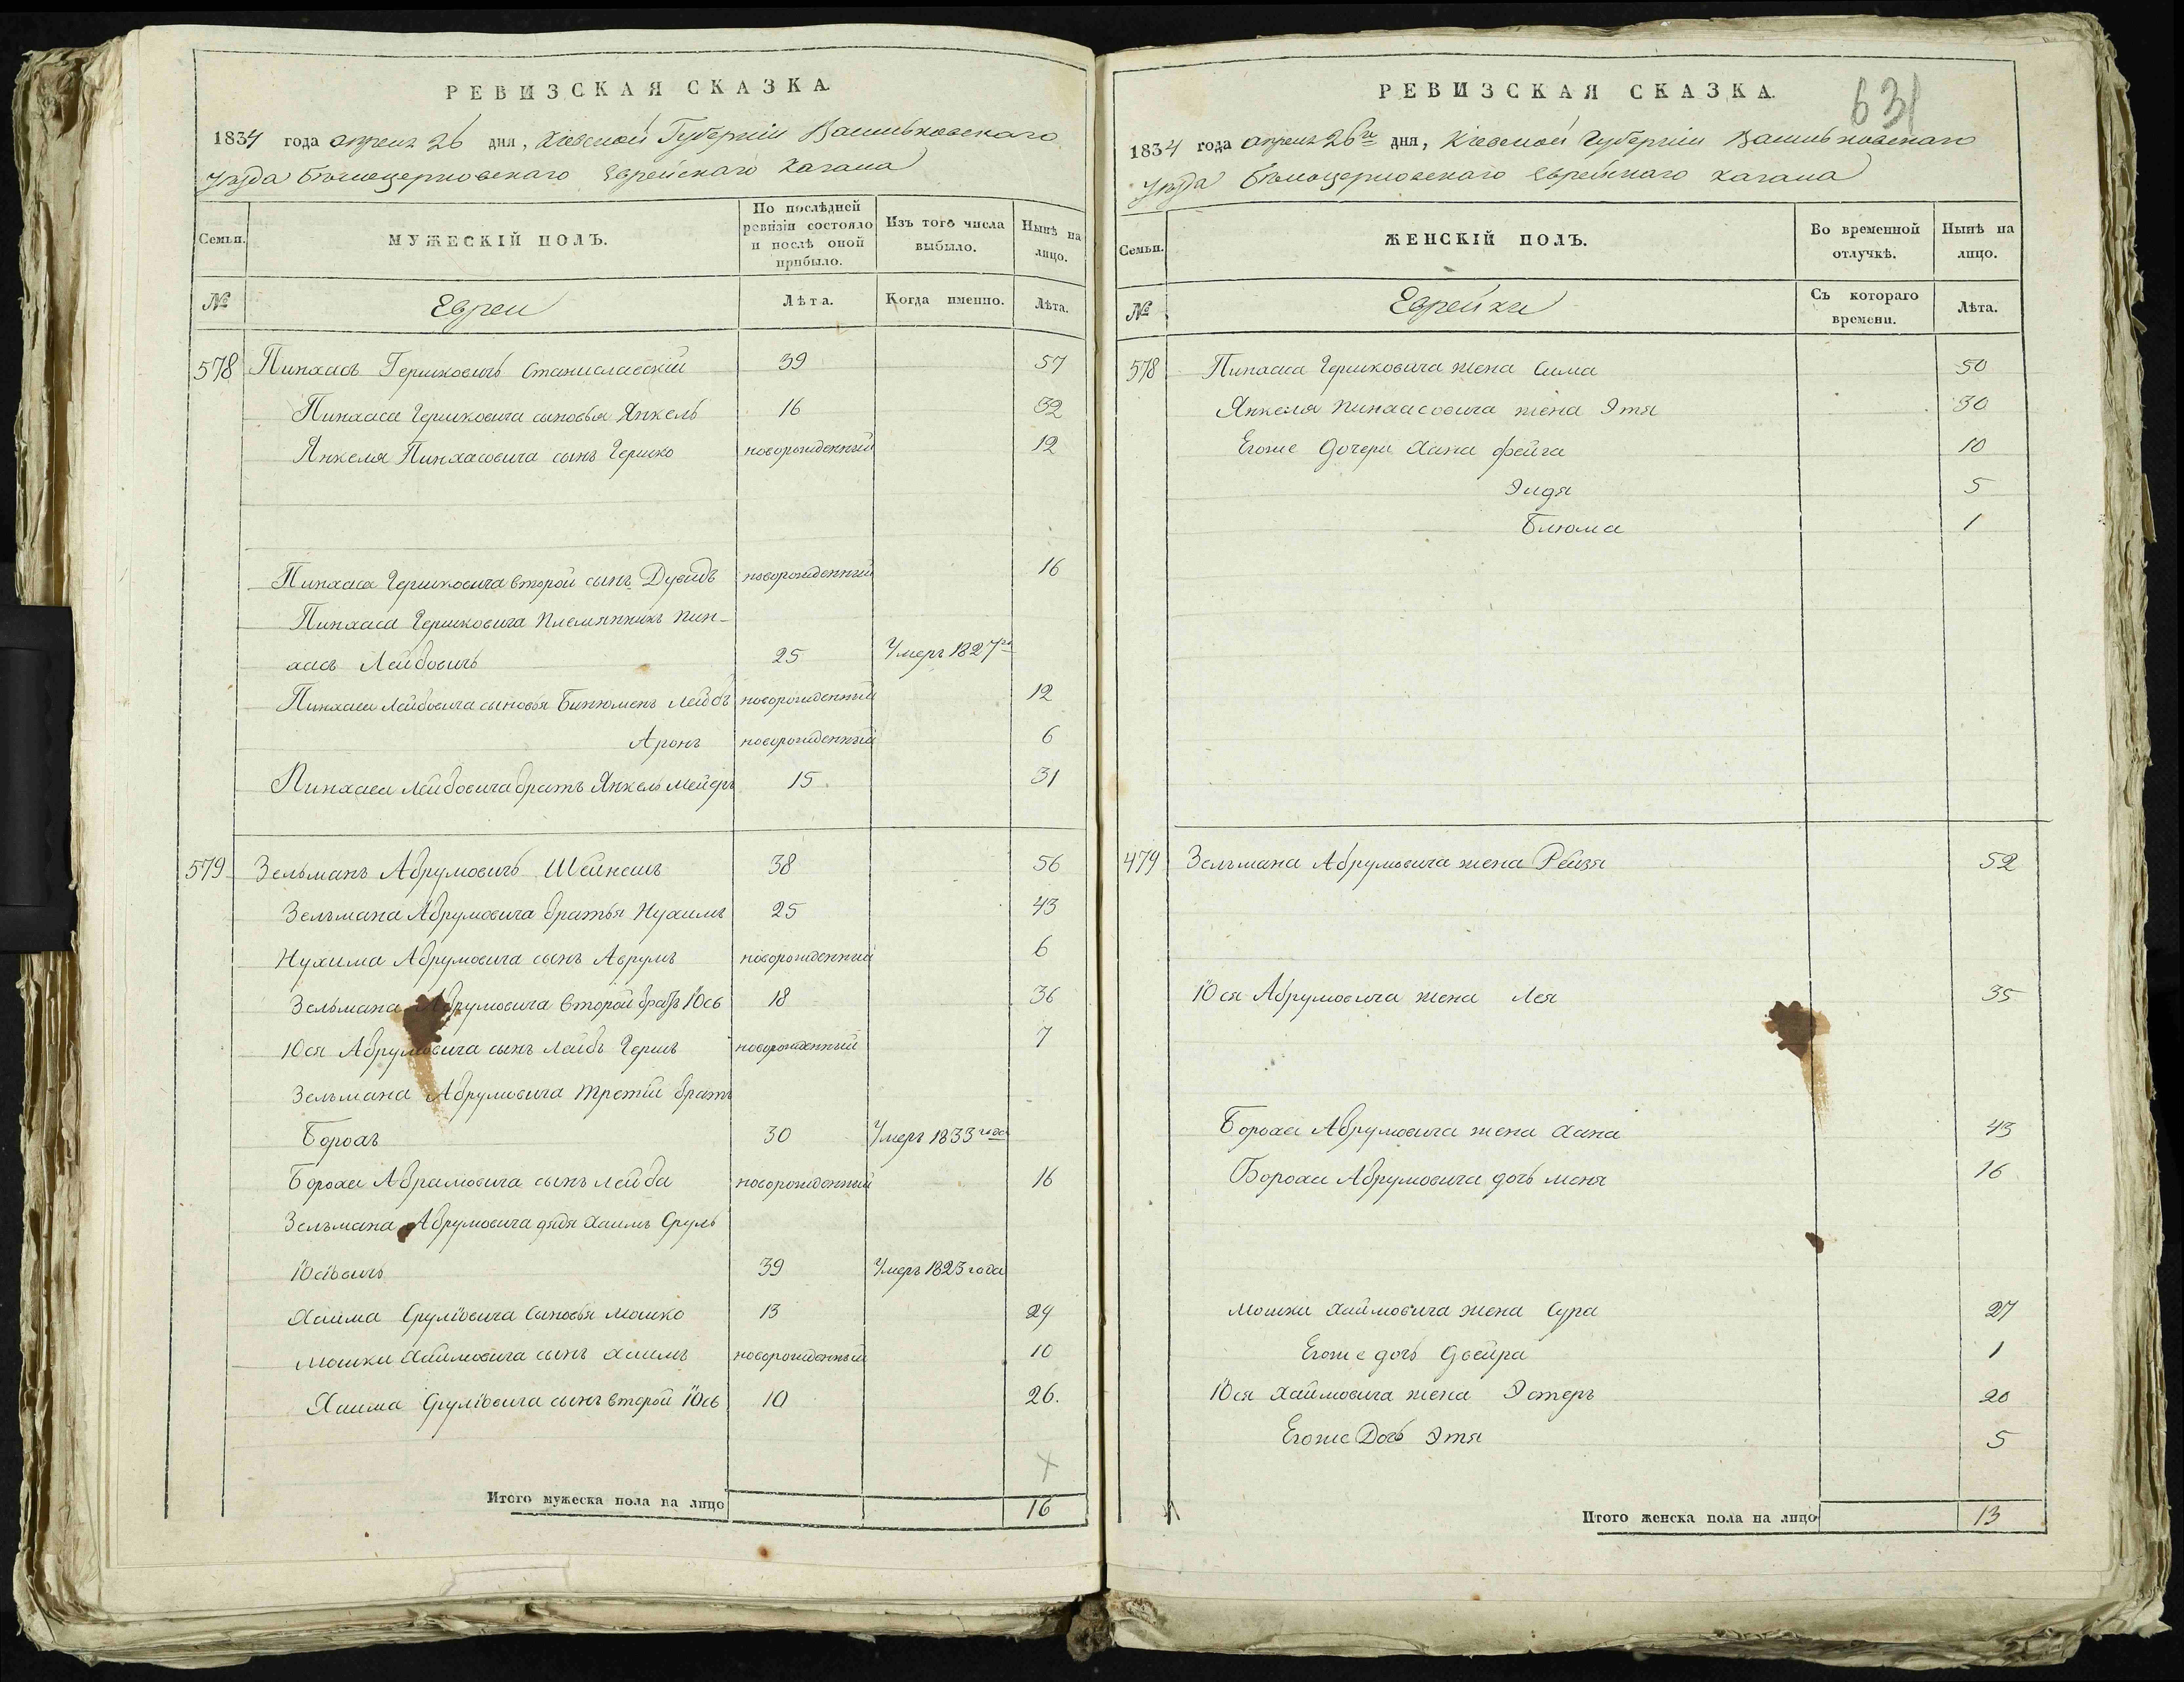 РЕВИЗСКАЯ СКАЗКА.
1834 года апреля 26 дня, Кіевской Губерніи Васильковскаго
Уѣзда Бѣлоцерковскаго Еврейскаго Кагала
Семьи.
МУЖЕСКІЙ ПОЛЪ.
По послѣдней
ревизіи состояло
и послѣ оной
прибыло.
Изъ того числа
выбыло.
Нынѣ на
лицо.
№
Евреи
Лѣта.
Когда именно.
Лѣта.
578 Пинхасъ Гершковичъ Станиславскій 39 57
Пинхаса Гершковича сыновья Янкель 16 32
Янкеля Пинхасовича сынъ Гершко новорожденный 12
Пинхаса Гершковича второй сынъ Дувидъ новорожденный 16
Пинхаса Гершковича племянникъ Пин-
хасъ Лейбовичъ 25 Умеръ 1827го
Пинхаса Лейбовича сыновья Бинюменъ Лейбъ новорожденный 12
Аронъ новорожденный 6
Пинхаса Лейбовича братъ Янкель Мейеръ 15 31
579 Зельманъ Абрумовичъ Шейнешъ 38 56
Зельмана Абрумовича братья Нухимъ 25 43
Нухима Абрумовича сынъ Аврумъ новорожденный 6
Зельмана Абрумовича второй братъ Юсь 18 36
Юся Абрумовича сынъ Лейбъ Гершъ новорожденный 7
Зельмана Абрумовича третій братъ
Борохъ 30 Умеръ 1833 года
Бороха Абрамовича сынъ Лейба новорожденный 16
Зельмана Абрумовича дядя Хаимъ Сруль
Юсіовичъ 39 Умеръ 1823 года
Хаима Сруліовича сыновья Мошко 13 29
Мошки Хаимовича сынъ Хаимъ новорожденный 10
Хаима Сруліовича сынъ второй Юсь 10 26.
Итого мужеска пола на лицо 16
РЕВИЗСКАЯ СКАЗКА.
631
1834 года апреля 26го дня, Кіевской Губерніи Васильковскаго
Уѣзда Бѣлоцерковскаго Еврейскаго Кагала
Семьи.
ЖЕНСКІЙ ПОЛЪ.
Во временной
отлучкѣ.
Нынѣ на
лицо.
№
Еврейки
Съ котораго
времени.
Лѣта.
578 Пинхаса Гершковича жена Сима 50
Янкеля Пинхасовича жена Этя 30
Егоже дочери Хана Фейга 10
Эидя 5
Блюма 1
479 Зельмана Абрумовича жена Рейзя 52
Юся Абрумовича жена Лея 35
Бороха Абрумовича жена Хана 43
Бороха Абрумовича дочь Меня 16
Мошки Хаймовича жена Сура 27
Егоже дочь Двейра 1
Юся Хаймовича жена Эстеръ 20
Егоже Дочь Этя 5
Итого женска пола на лицо 13